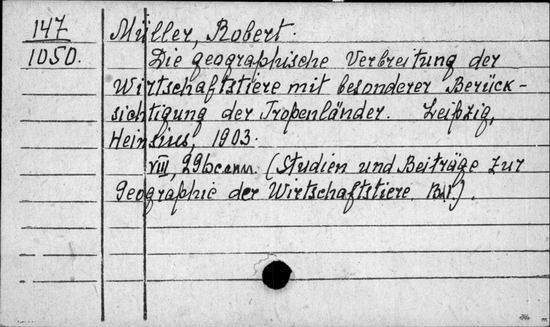 147
1050.
Müller, Robert.
Die geographische Verbreitung der
Wirtschaftstiere mit besonderer Berück-
sichtigung der Tropenländer. Leipzig,
Heinsius, 1903.
VIII, 296 (Studien und Beiträge zur
Geographie der Wirtschaftstiere. Bd I.).